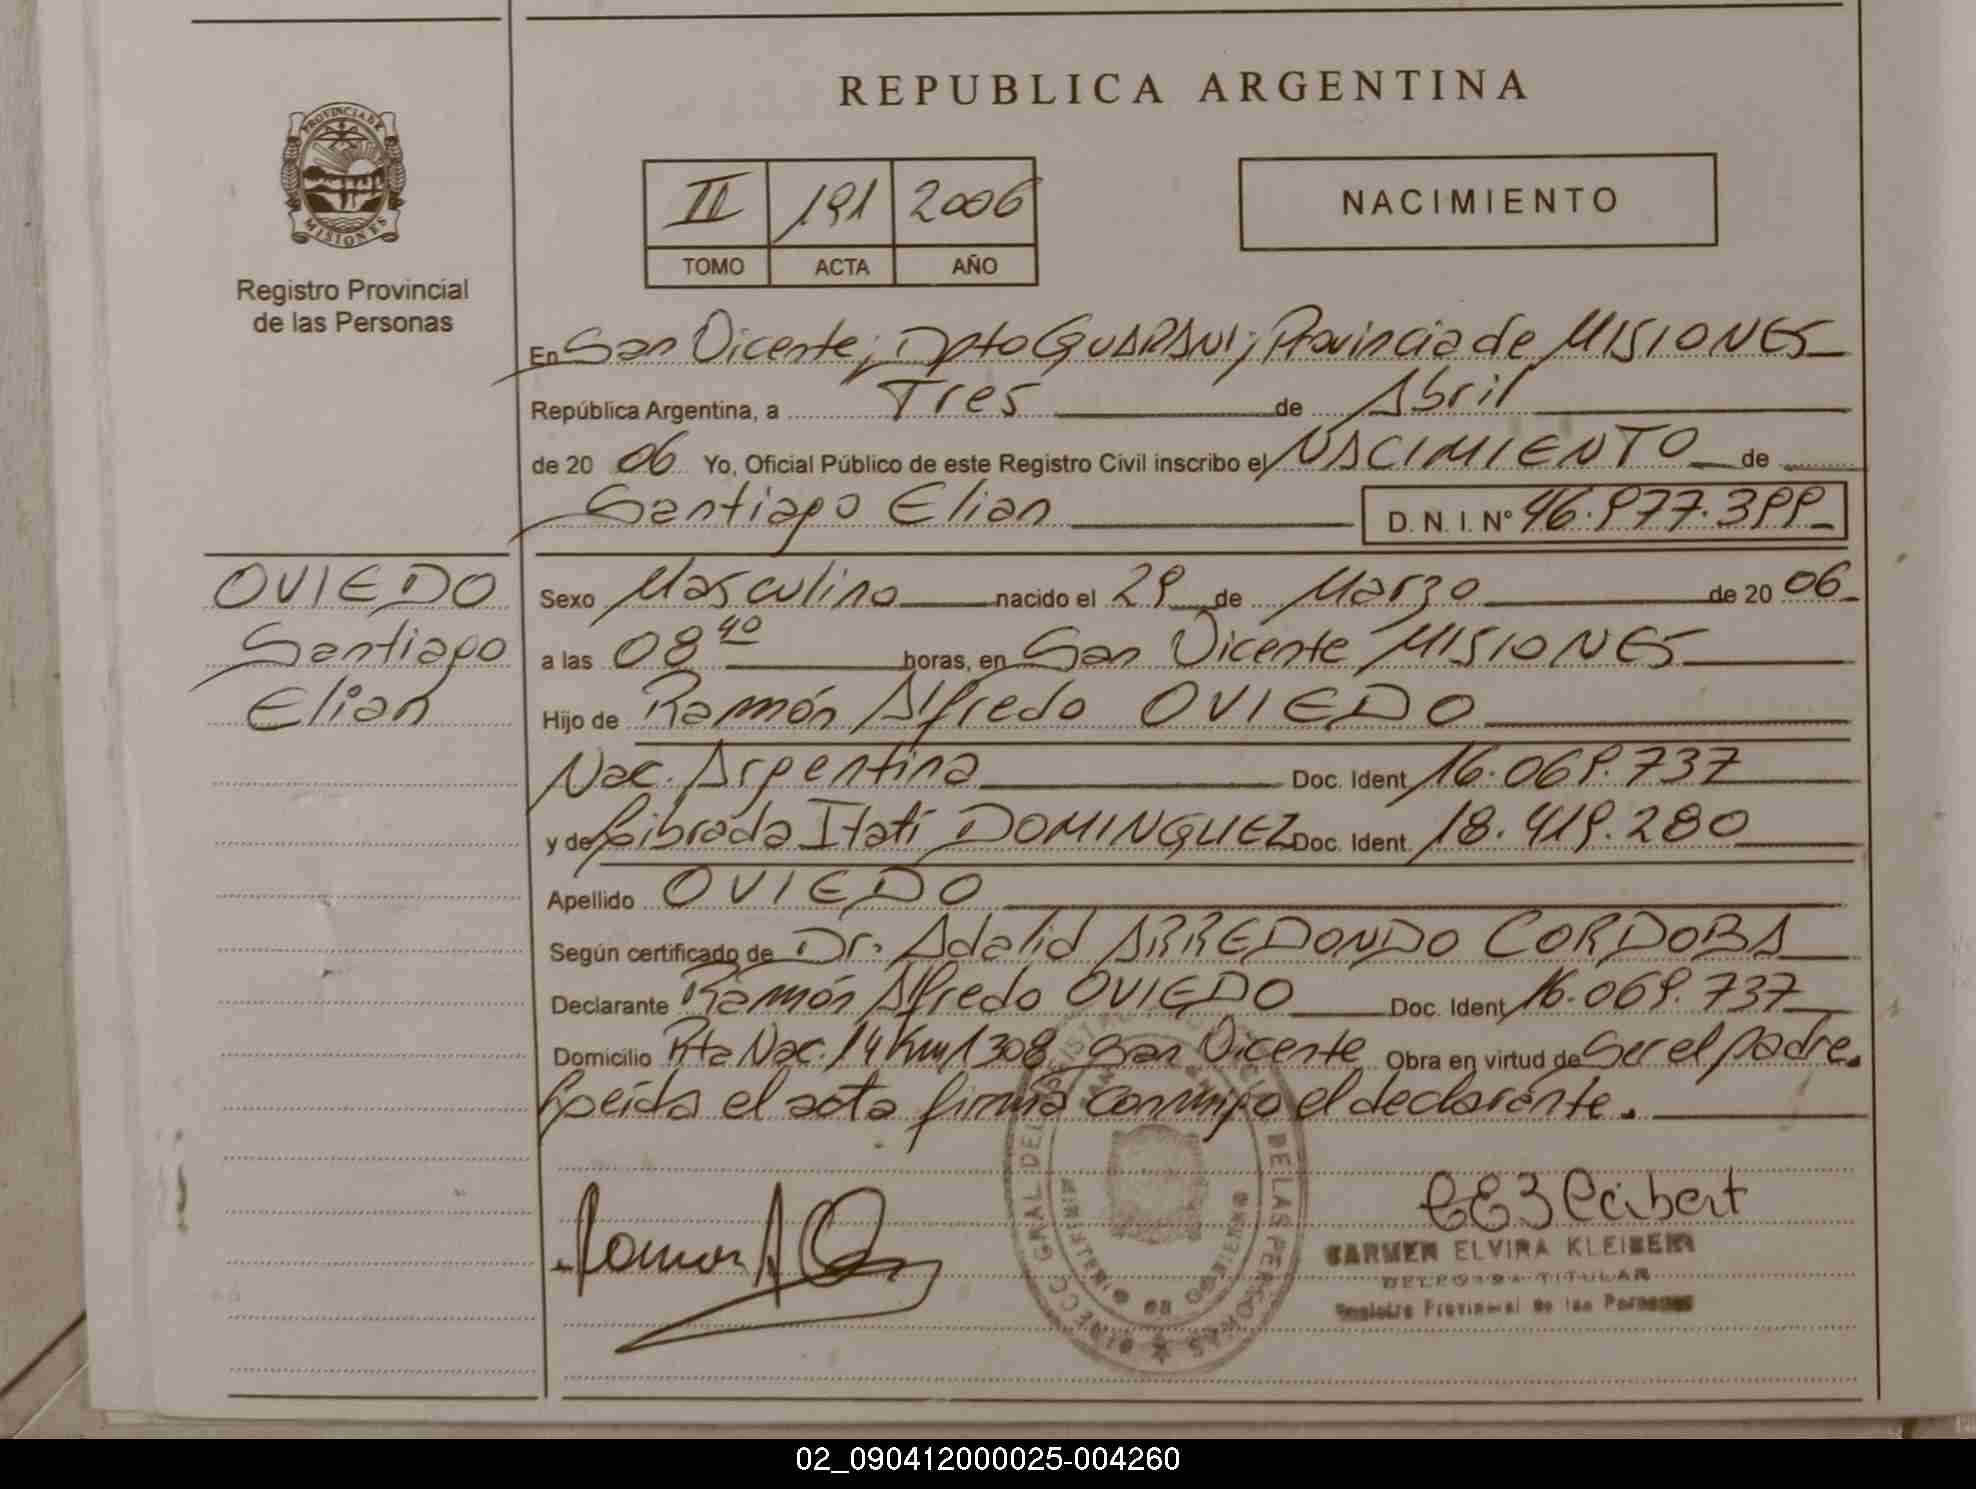 REPUBLICA ARGENTINA
PROVINCIA DE MISIONES
Registro Provincial
de las Personas
II 191 2006
TOMO ACTA AÑO
NACIMIENTO
En San Vicente; Dpto GUARANI; Provincia de MISIONES
República Argentina, a Tres de Abril
de 20 06 Yo, Oficial Público de este Registro Civil inscribo el NACIMIENTO de
Santiago Elian D. N. I. N° 46.977.399
OVIEDO
Santiago
Elian
Sexo Masculino nacido el 29 de Marzo de 20 06
a las 08 40 horas, en San Vicente MISIONES
Hijo de Ramón Alfredo OVIEDO
Nac. Argentina Doc. Ident 16.069.737
y de Librada Itatí DOMINGUEZ Doc. Ident. 18.419.280
Apellido OVIEDO
Según certificado de Dr. Adalid ARREDONDO CORDOBA
Declarante Ramón Alfredo OVIEDO Doc. Ident 16.069.737
Domicilio Rta Nac. 14 Km 1308 San Vicente Obra en virtud de Ser el padre.
Leída el acta firma conmigo el declarante.
Ramon A
CARMEN ELVIRA KLEIBERT
DELEGADA TITULAR
Registro Provincial de las Personas
02_090412000025-004260